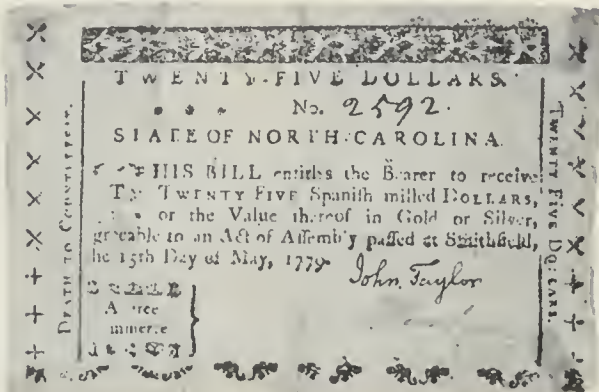 TWENTY-FIVE DOLLARS.
No. 2592.
STATE OF NORTH-CAROLINA.
THIS BILL entitles the Bearer to receive
TWENTY FIVE Spaniſh milled DOLLARS,
or the Value thereof in Gold or Silver,
greeable to an Act of Aſſembly paſſed at Smithfield,
he 15th Day of May, 1779.
John Taylor
A free
ommerce
DEATH TO COUNTERFEIT.
TWENTY FIVE DOLLARS.